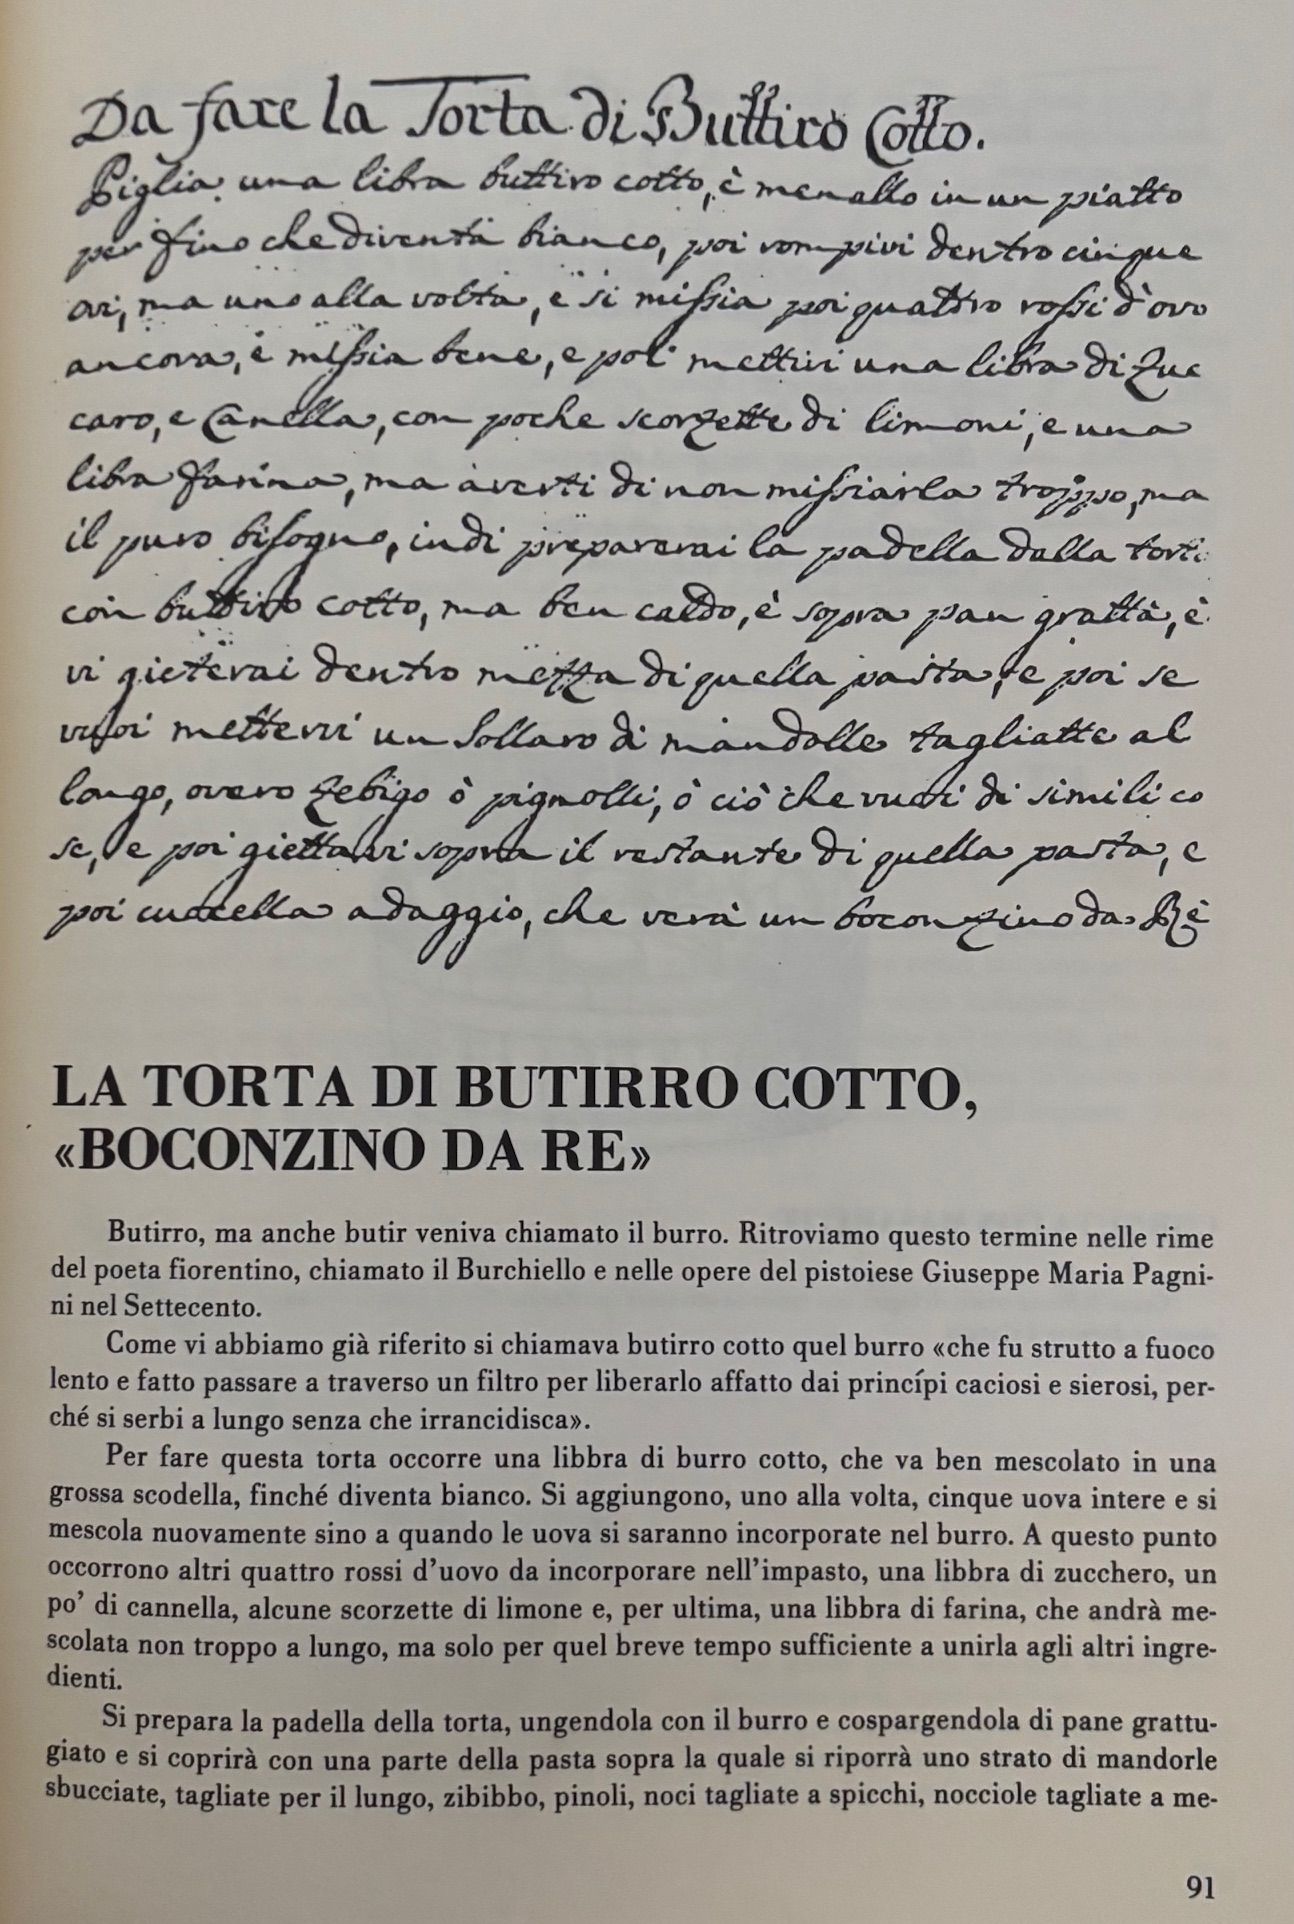 Da fare la Torta di Buttiro Cotto.
Piglia una libra buttiro cotto, è menallo in un piatto
per fino che diventa bianco, poi rompivi dentro cinque
ovi, ma uno alla volta, e si missia poi quattro rossi d'ovo
ancora, è missia bene, e poi mettivi una libra di Zuc
caro, e Canella, con poche scorzette di limoni, e una
libra farina, ma averti di non missiarla troppo, ma
il puro bisogno, indi preparerai la padella dalla torti
con buttiro cotto, ma ben caldo, è sopra pan grattà, è
vi gieterai dentro mezza di quella pasta, e poi se
vuoi mettervi un sollaro di mandolle tagliatte al
longo, overo zebigo ò pignolli, ò ciò che vuoi di simili co
se, e poi giettavi sopra il restante di quella pasta, e
poi cuocella adaggio, che verà un boconzino da Rè
LA TORTA DI BUTIRRO COTTO,
«BOCONZINO DA RE»
Butirro, ma anche butir veniva chiamato il burro. Ritroviamo questo termine nelle rime
del poeta fiorentino, chiamato il Burchiello e nelle opere del pistoiese Giuseppe Maria Pagni-
ni nel Settecento.
Come vi abbiamo già riferito si chiamava butirro cotto quel burro «che fu strutto a fuoco
lento e fatto passare a traverso un filtro per liberarlo affatto dai princípi caciosi e sierosi, per-
ché si serbi a lungo senza che irrancidisca».
Per fare questa torta occorre una libbra di burro cotto, che va ben mescolato in una
grossa scodella, finché diventa bianco. Si aggiungono, uno alla volta, cinque uova intere e si
mescola nuovamente sino a quando le uova si saranno incorporate nel burro. A questo punto
occorrono altri quattro rossi d'uovo da incorporare nell'impasto, una libbra di zucchero, un
po' di cannella, alcune scorzette di limone e, per ultima, una libbra di farina, che andrà me-
scolata non troppo a lungo, ma solo per quel breve tempo sufficiente a unirla agli altri ingre-
dienti.
Si prepara la padella della torta, ungendola con il burro e cospargendola di pane grattu-
giato e si coprirà con una parte della pasta sopra la quale si riporrà uno strato di mandorle
sbucciate, tagliate per il lungo, zibibbo, pinoli, noci tagliate a spicchi, nocciole tagliate a me-
91